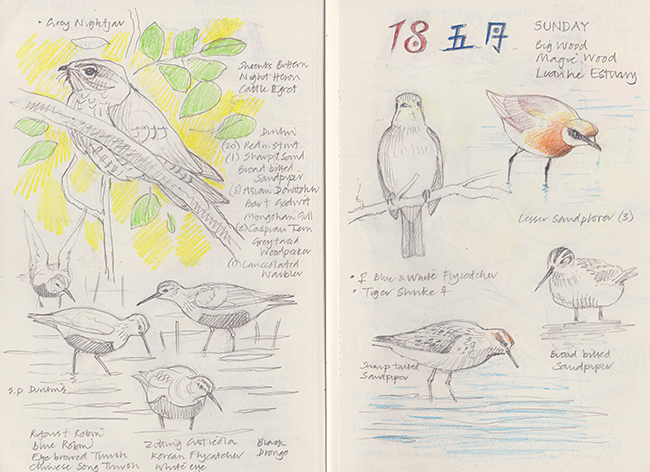 • Grey Nightjar
Night Heron
Cattle Egret
Dunlin
(20) Redn. stint
(1) Sharpt Sand
Broad billed
Sandpiper
(3) Asian Dowitcher
Bar t Godwit
Mongolian Gull
(2) Caspian Tern
Grey faced
Woodpecker
(1) Lanceolated
Warbler
S.P. Dunlins
Rufous t Robin
Blue Robin
Eye browed Thrush
Chinese Song Thrush
Zitting Cisticola
Korean Flycatcher
White eye
Black
Drongo
18 五月 SUNDAY
Big Wood
Magpie Wood
Luanhe Estuary
Lesser Sandplover (3)
• ♀ Blue & White Flycatcher
• Tiger Shrike ♀
Sharp tailed
Sandpiper
Broad billed
Sandpiper